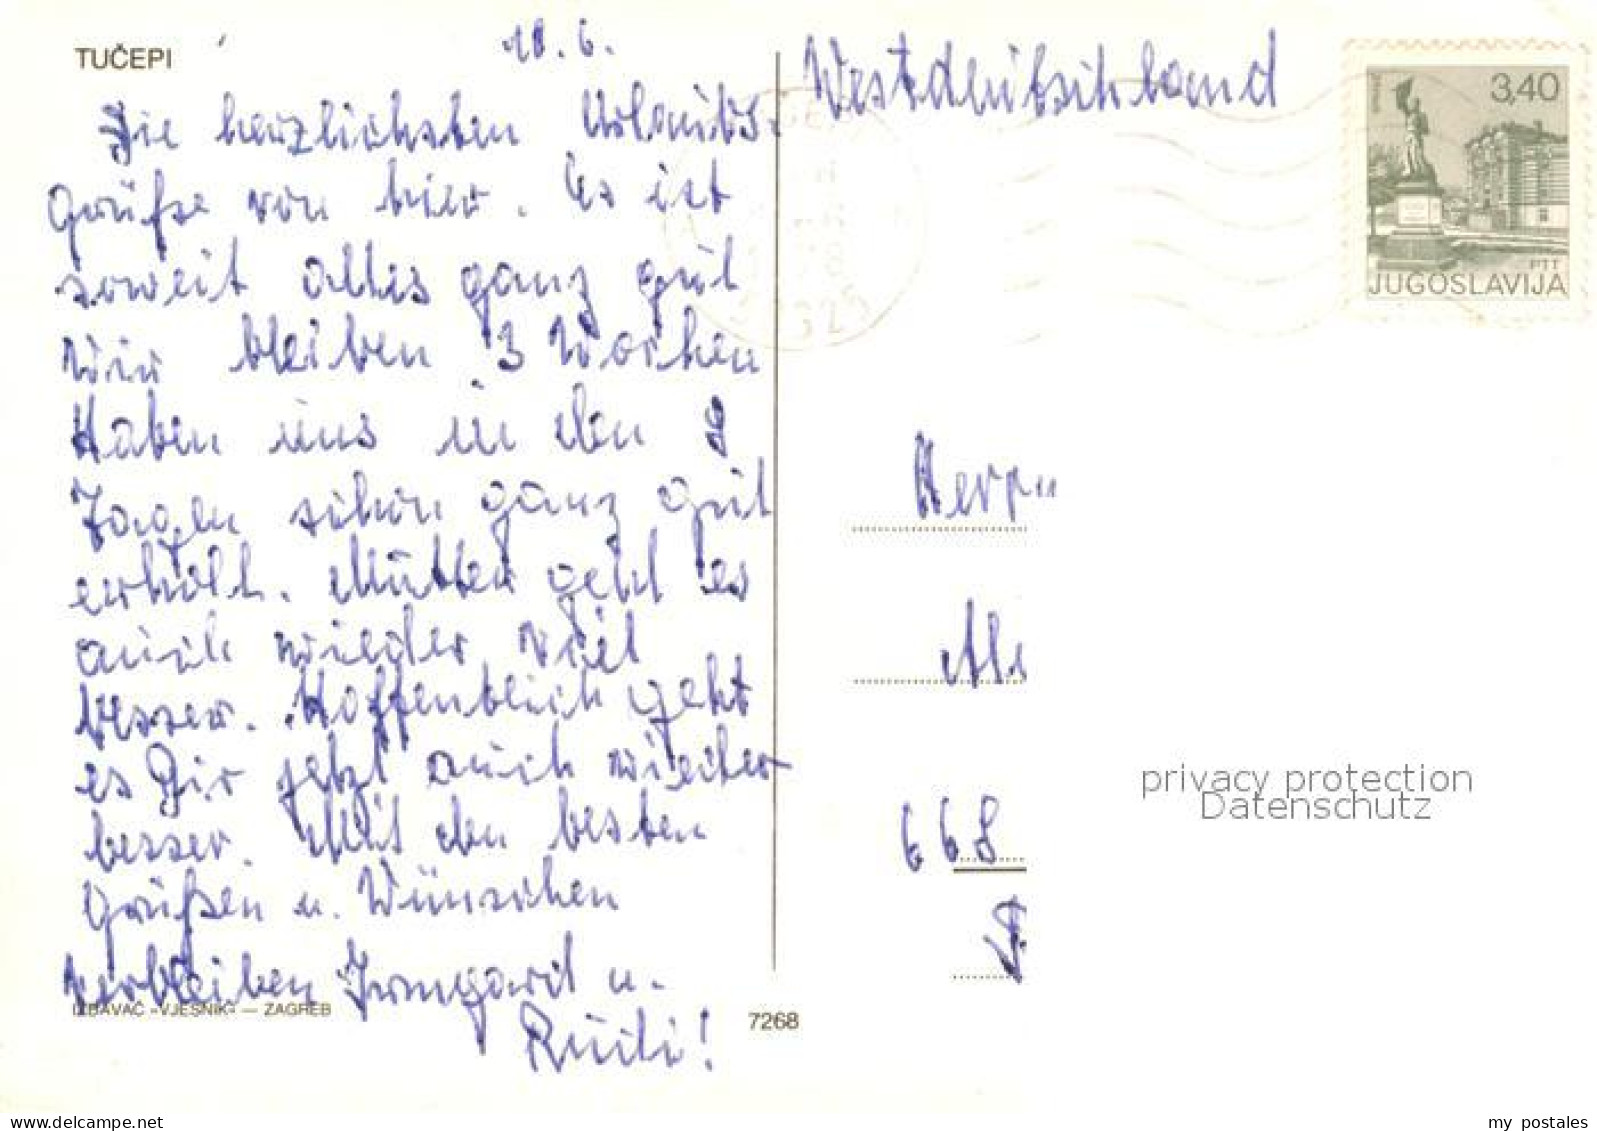 TUČEPI
18. 6.
Die herzlichsten Urlaubs-
grüße von hier. Es ist
soweit alles ganz gut
Wir bleiben 3 Wochen
Haben uns in den
Tagen schon ganz gut
erholt. Mutter geht es
auch wieder viel
besser. Hoffentlich geht
es Dir jetzt auch wieder
besser. Mit den besten
Grüßen u. Wünschen
verbleiben Irmgard u.
Rudi!
IZDAVAČ »VJESNIK« — ZAGREB
7268
Westdeutschland
3,40
PTT
JUGOSLAVIJA
Herrn
668
privacy protection
Datenschutz
delcampe.net
my_postales